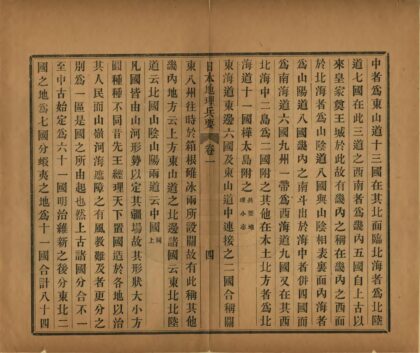 中者爲東山道十三國在其北面臨北海者爲北陸
道七國在此三道之西南者爲畿內五國自上古以
來皇家奠王城於此故有畿內之稱在畿內之西而
於北海者爲山陰道八國與山陰相表裏面內海者
爲山陽道八國畿內之南斗出於海中者併四國而
爲南海道六國九州一帶爲西海道九國又在其西
北海中二島爲二國附之其他在本土北方者爲北
海道十一國樺太島附之
東海道東邊六國及東山道中連接之二國合稱關
日本地理兵要 卷一 四
東八州往時於箱根碓冰兩所設關故有此稱其他
畿內地方云上方東山道之北邊諸國云東北北陸
道云北國山陰山陽兩道云中國 同上
凡國皆由山河形勢以定其疆場故其形狀大小方
圓種種不同昔先王經理天下置國造於各地以治
其人民而山嶺河海遮障之有風教難及者更分之
別爲一區是國之所由起也然上古諸國分合不一
至中古始定爲六十一國明治維新之後分東北二
國之地爲七國分蝦夷之地爲十一國合計八十四